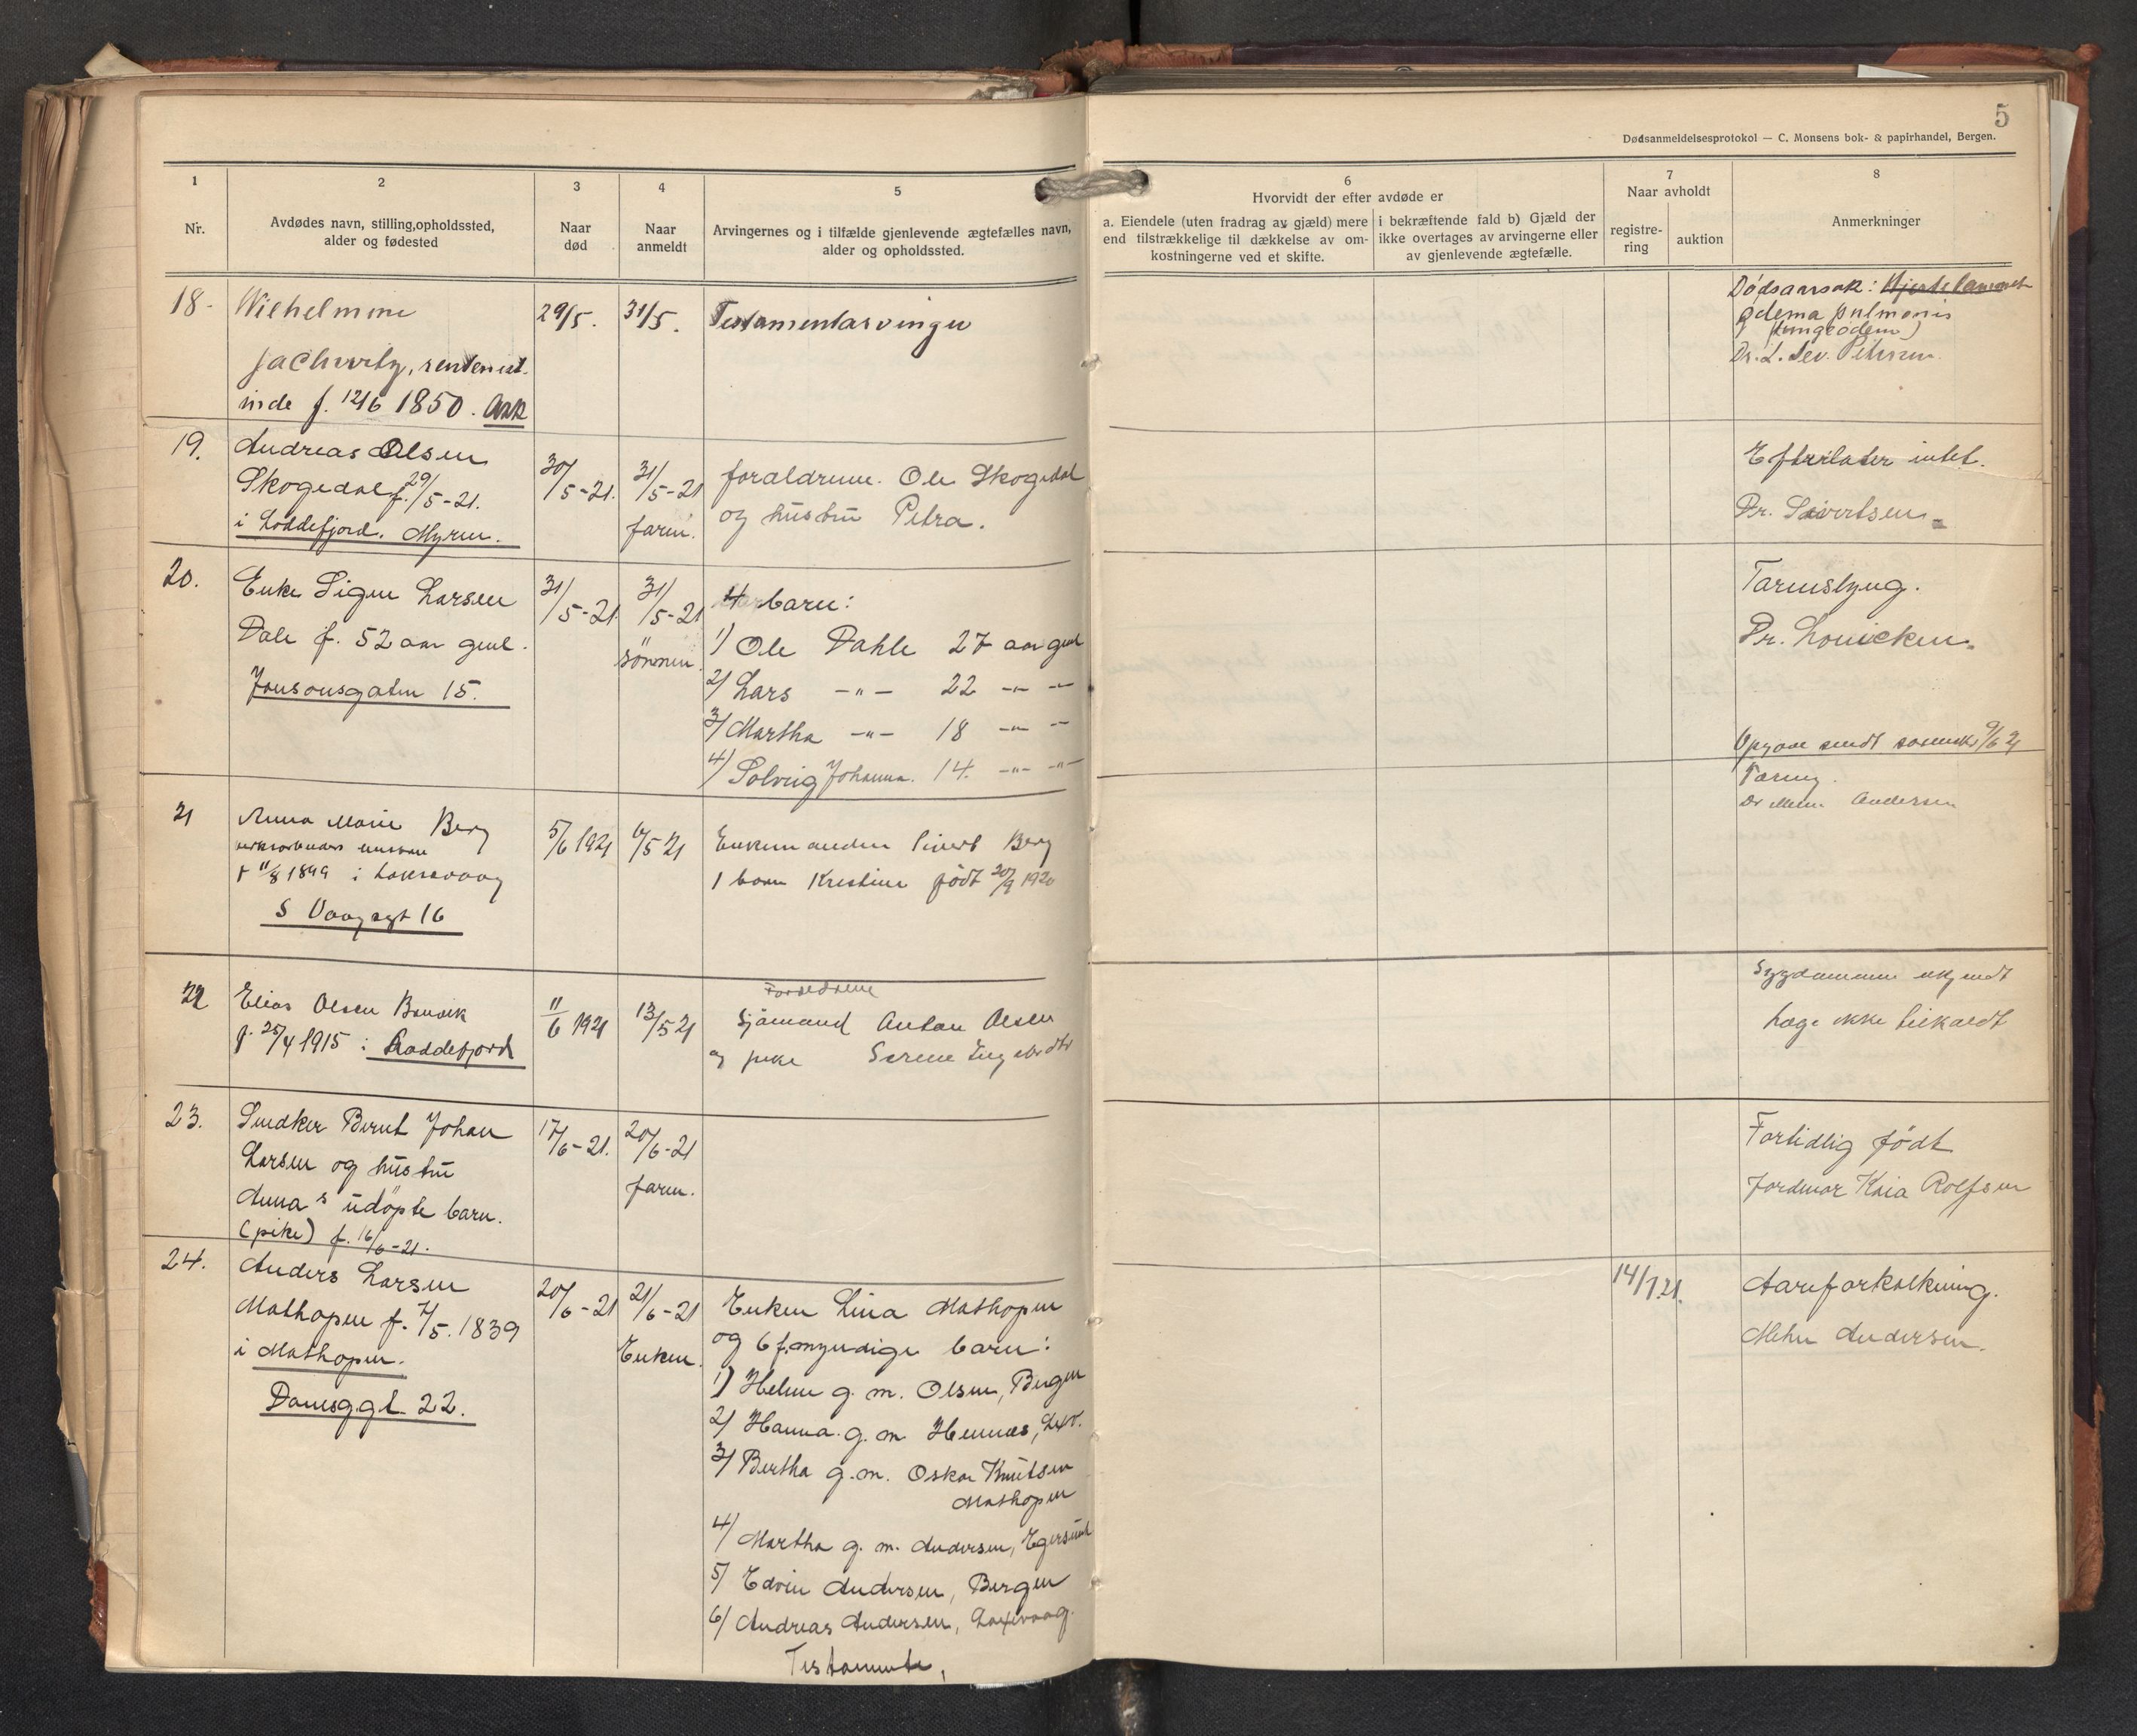 5
Dødsanmeldelsesprotokol — C. Monsens bok- & papirhandel, Bergen.
1
Nr.
2
Avdødes navn, stilling, opholdssted,
alder og fødested
3
Naar
død
4
Naar
anmeldt
5
Arvingernes og i tilfælde gjenlevende ægtefælles navn,
alder og opholdssted.
6
Hvorvidt der efter avdøde er
a. Eiendele (uten fradrag av gjæld) mere
end tilstrækkelige til dækkelse av om-
kostningerne ved et skifte.
i bekræftende fald b) Gjæld der
ikke overtages av arvingerne eller
av gjenlevende ægtefælle.
7
Naar avholdt
registre-
ring
auktion
8
Anmerkninger
18-
Wilhelmine
Jachwitz, rentenist-
inde f. 12/6 1850. Ask
29/5.
31/5.
Testamentarvinger
Dødsaarsak:
ødema pulmonis
(lungeødem)
Dr. L. Sev. Petersen
19.
Andreas Olsen
Skogedal f. 29/5-21.
i Loddefjord. Myren.
30/5-21.
31/5-21
faren.
foraldrene. Ole Skogedal
og hustru Petra.
Efterlater intet.
Dr. Sivertsen
20.
Enke Signe Larsen
Dale f. 52 aar gml.
Jonsonsgaten 15.
31/5-21.
31/5-21
sönnen.
4 barn:
1) Ole Dahle 27 aar gml
2) Lars -"- 22 -"- -
3) Martha -"- 18 -"- -
4) Solveig Johanna. 14. -"- -"-
Tarmslyng.
Dr. Lonicken.
Opgave sendt sorensk 9/6 21
21
Anna Marie Berg
f 11/8 1899 i Laksevaag
S Vaagsgt 16
5/6 1921
6/5 21
Enkemanden Sivert Berg
1 barn Kristine født 20/9 1920
Tæring.
Dr Mehn Andersen
22
Elias Olsen Bauvik
f. 25/4 1915 i Loddefjord
11/6 1921
13/5 21
Forældrene
Sjömand Anton Olsen
og pike Serene Engebrdtr
Sygdommen ukjendt
Læge ikke tilkaldt
23.
Snedker Bernt Johan
Larsen og hustru
Anna's udöpte barn.
(pike) f. 16/6-21.
17/6-21.
20/6-21
faren.
Fortidlig født
Jordmor Kaia Rolfsen
24.
Anders Larsen
Mathopen f. 7/5. 1839
i Mathopen.
Damsggt. 22.
20/6-21
21/6-21
Enken.
Enken Lina Mathopen
og 6 f.myndige barn:
1) Helene g. m. Olsen, Bergen
2) Hanna. g. m. Hennæs, Lxv.
3) Bertha g. m. Oskar Knutsen
Mathopen
4) Martha g. m. Andersen, Egersund
5) Edvin Andersen, Bergen
6) Andreas Andersen, Laxevaag.
Testamente,
14/7 21.
Aareforkalkning.
Mehn Andersen.